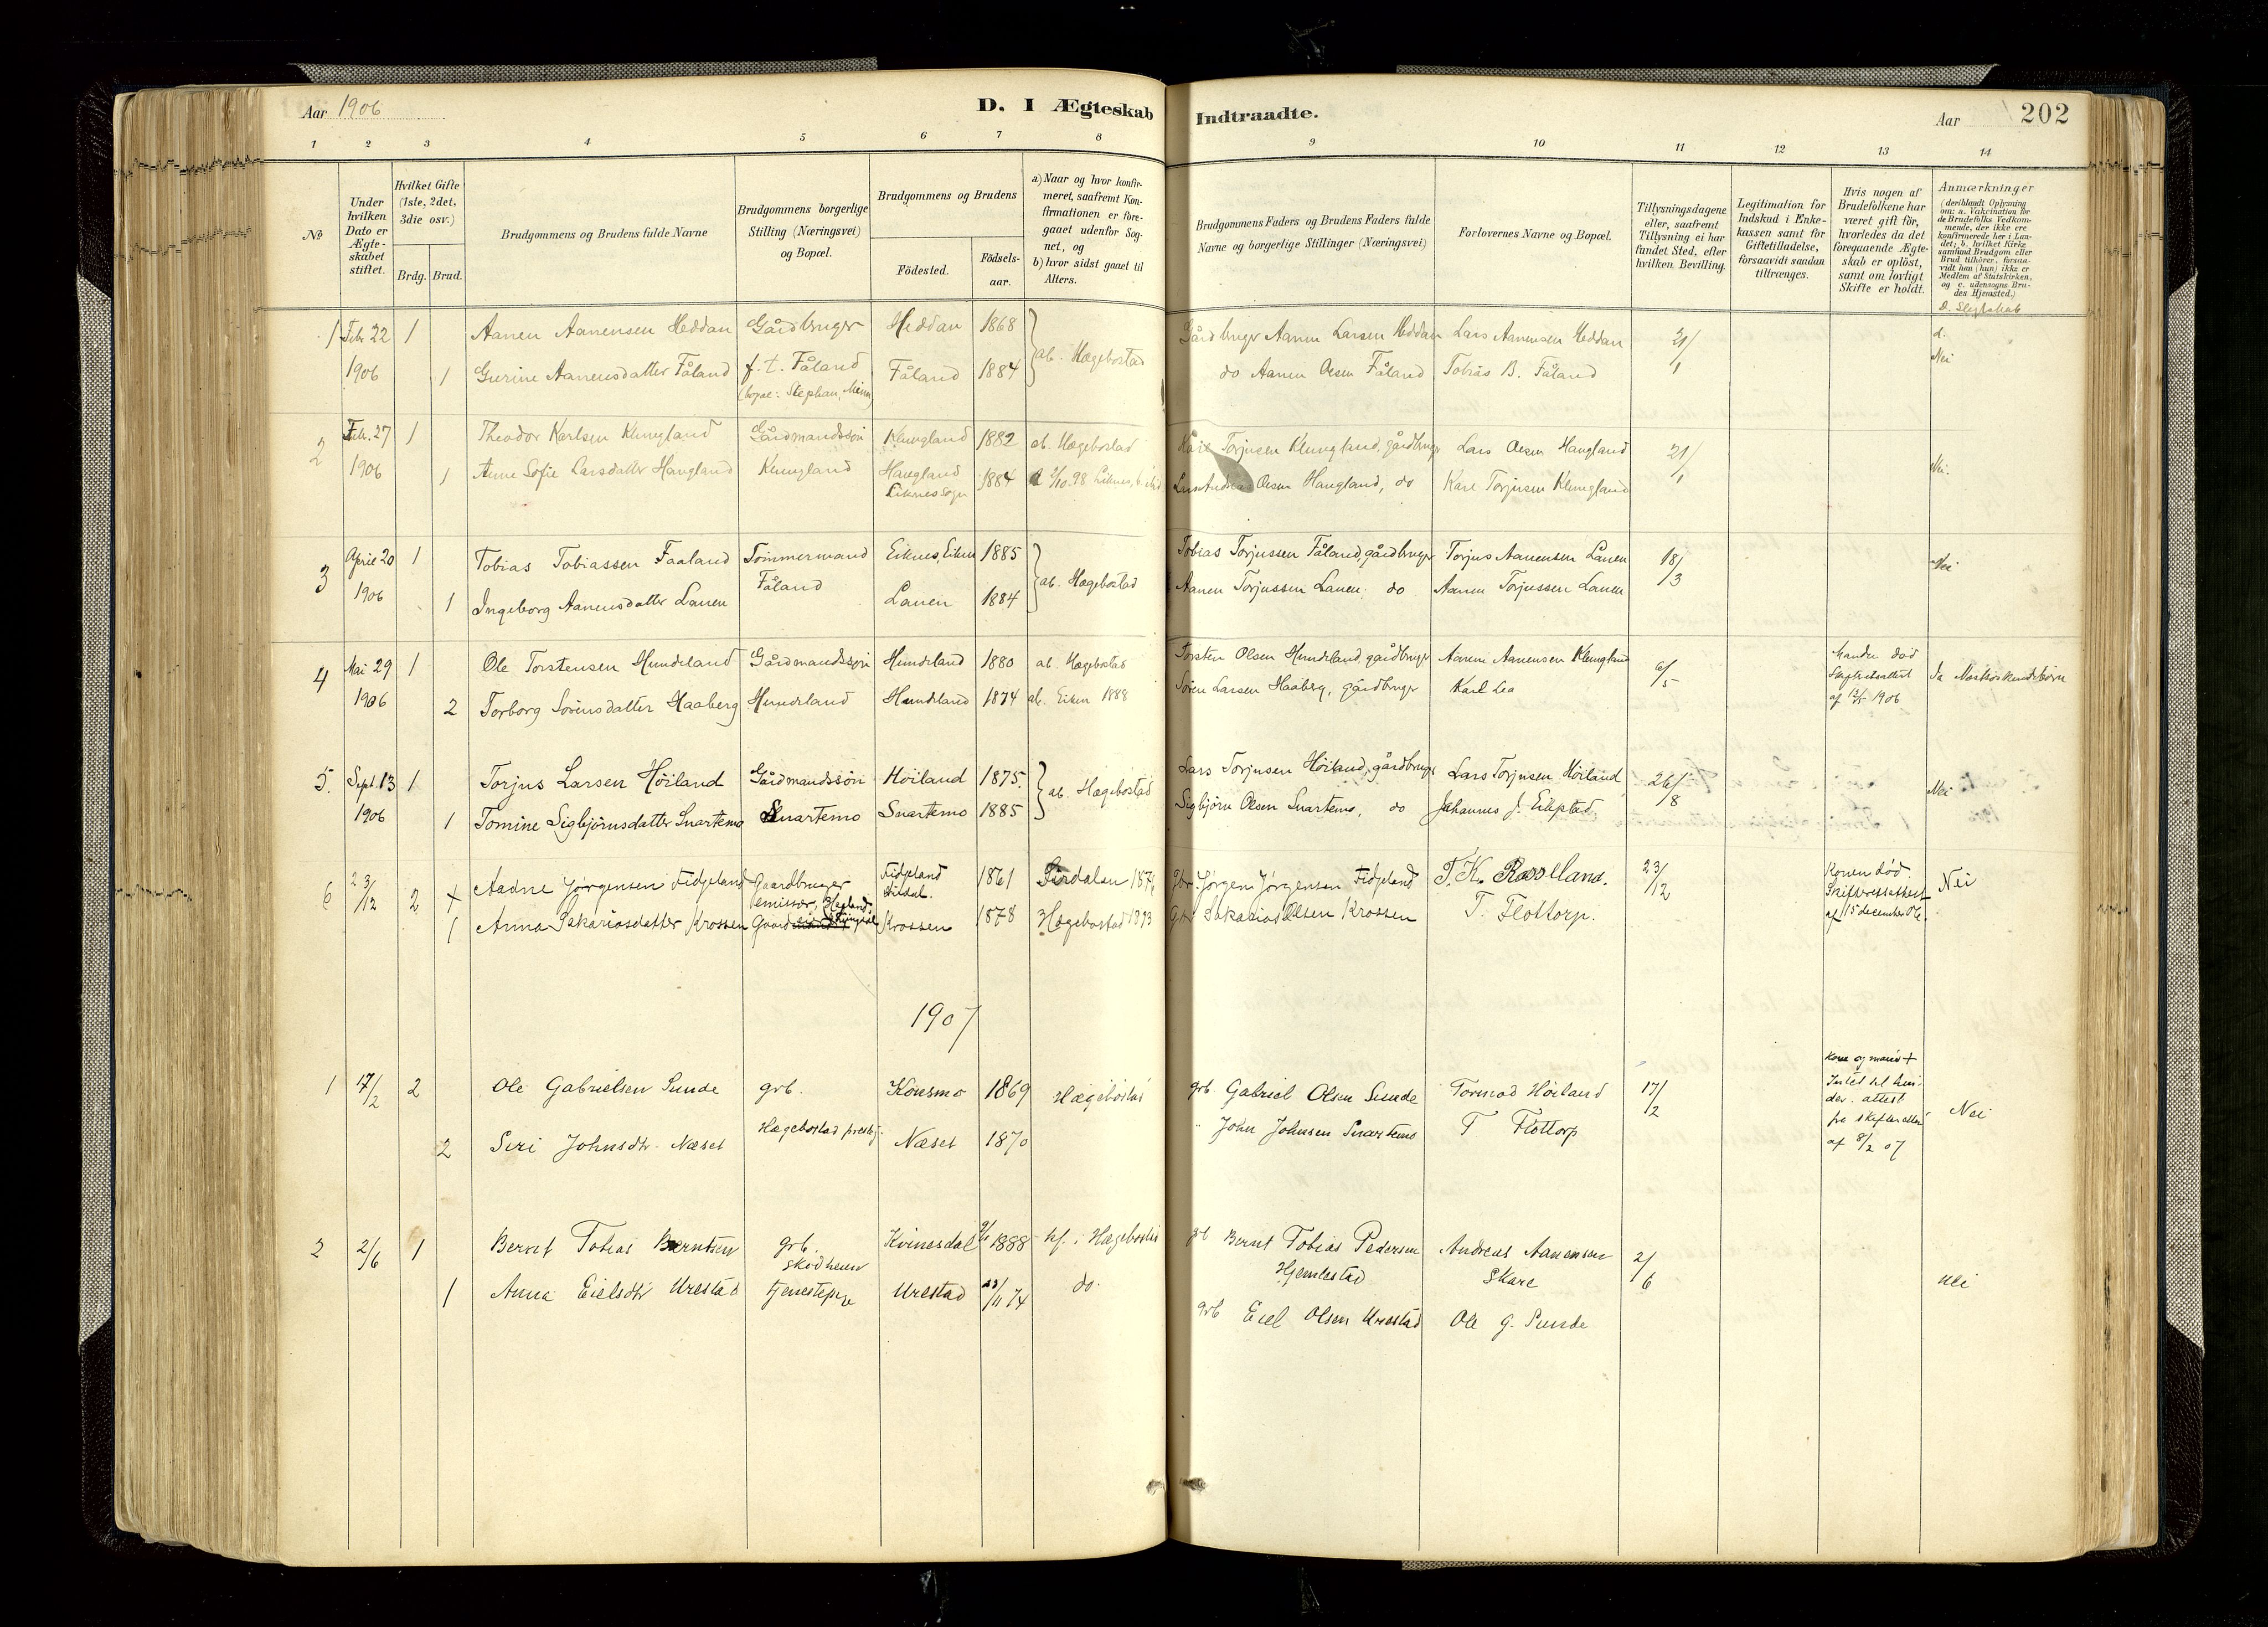 Aar 1906
D. I Ægteskab Indtraadte.
Aar
202
1 2 3 4 5 6 7 8 9 10 11 12 13 14
No
Under hvilken Dato er Ægte-skabet stiftet.
Hvilket Gifte (1ste, 2det, 3die osv.)
Brdg. Brud.
Brudgommens og Brudens fulde Navne
Brudgommens borgerlige Stilling (Næringsvei) og Bopæl.
Brudgommens og Brudens
Födested.
Födsels-aar.
a) Naar og hvor konfir-meret, saafremt Kon-firmationen er fore-gaaet udenfor Sog-net, og
b) hvor sidst gaaet til Alters.
Brudgommens Faders og Brudens Faders fulde Navne og borgerlige Stillinger (Næringsvei)
Forlovernes Navne og Bopæl.
Tillysningsdagene eller, saafremt Tillysning ei har fundet Sted, efter hvilken Bevilling.
Legitimation for Indskud i Enke-kassen samt for Giftetilladelse, forsaavidt saadan tiltrænges.
Hvis nogen af Brudefolkene har været gift för, hvorledes da det foregaaende Ægte-skab er oplöst, samt om lovligt Skifte er holdt.
Anmærkninger
(deriblandt Oplysning om: a. Vakcination for de Brudefolks Vedkom-mende, der ikke ere konfirmerede her i Lan-det; b. hvilket Kirke-samfund Brudgom eller Brud tilhörer, forsaa-vidt han (hun) ikke er Medlem af Statskirken, og c. udensogns Bru-des Hjemsted.)
D. Slegtskab
1 Febr 22 1 Aanen Aanensen Heddan Gårdbruger Heddan 1868 ab. Hægebostad Gårdbruger Aanen Larsen Heddan Lars Aanensen Heddan 21/1 d.
1906 1 Gurine Aanensdatter Fåland f. t. Fåland Fåland 1884 do Aanen Olsen Fåland Tobias B. Fåland Nei
(bopæl: Stephan, Minn.)
2 Febr. 27 1 Theodor Karlsen Klungland Gårdmandssøn Klungland 1882 ab. Hægebostad Torjusen Klungland, gårdbruger Lars Olsen Haugland 21/1
1906 1 Anne Sofie Larsdatter Haugland Klungland Haugland 1884 2/10.98 Liknes, Lars Andreas Olsen Haugland, do Karl Torjusen Klungland Nei.
Liknes Sogn
3 April 20 1 Tobias Tobiassen Faaland Tømmermand Eiknes, Eiken 1885 ab. Hægebostad Tobias Torjussen Fåland, gårdbruger Torjus Aanensen Lauen 18/3 Nei
1906 1 Ingeborg Aanensdatter Lauen Fåland Lauen 1884 Aanen Torjussen Lauen, do Aanen Torjussen Lauen
4 Mai 29 1 Ole Torstensen Hundsland Gårdmandssøn Hundsland 1880 ab. Hægebostad Torsten Olsen Hundsland, gårdbruger Aanen Aanensen Klungland 6/5 Manden død Ja Næstsøskendebørn
1906 2 Torborg Sørensdatter Haaberg Hundsland Hundsland 1874 ab. Eiken 1888 Søren Larsen Haaberg, gårdbruger Karl Lea Skifteattest
af 12/5 1906
5. Sept. 13 1 Torjus Larsen Høiland Gårdmandssøn Høiland 1875. ab. Hægebostad Lars Torjusen Høiland, gårdbruger Lars Torjusen Høiland 26/8 Nei
1906 1 Tomine Sigbjørnsdatter Snartemo Snartemo Snartemo 1885 Sigbjørn Olsen Snartemo, do Johannes J. Eikestad
6 23/12 2 + Aadne Jørgensen Fidjeland Gaardbruger Fidjeland 1861 Sirdalen Gbr. Jørgen Jørgensen Fidjeland T. K. Rosseland. 23/12 Konen død. Nei
emissær, Sirdal. Skifteretsattest
1 Anna Sakariasdatter Krossen Krossen 1878 Hægebostad 1893 Gbr Sakarias Olsen Krossen T. Flottorp. af 15 december 06.
1907
1 17/2 2 Ole Gabrielsen Sunde grb. Konsmo 1869 Hægebostad grb. Gabriel Olsen Sunde Tormod Høiland 17/2 Kone og mand +
Intet til hin-
der. attest
2 Siri Johnsdtr. Næset Hægebostad prestg. Næset 1870 " John Johnsen Snartemo T Flottorp fra skifteretten Nei
af 8/2 07
2 2/6 1 Bernt Tobias Berntsen grb. Kvinesdal 1888 kf. i Hægebostad grb Bernt Tobias Pedersen Andreas Aanensen 2/6
Hjemlestad Skare
1 Anna Eielsdtr Urestad tjenestepge Urestad 23/11 74 do. nei
grb Eiel Olsen Urestad Ole G. Sunde